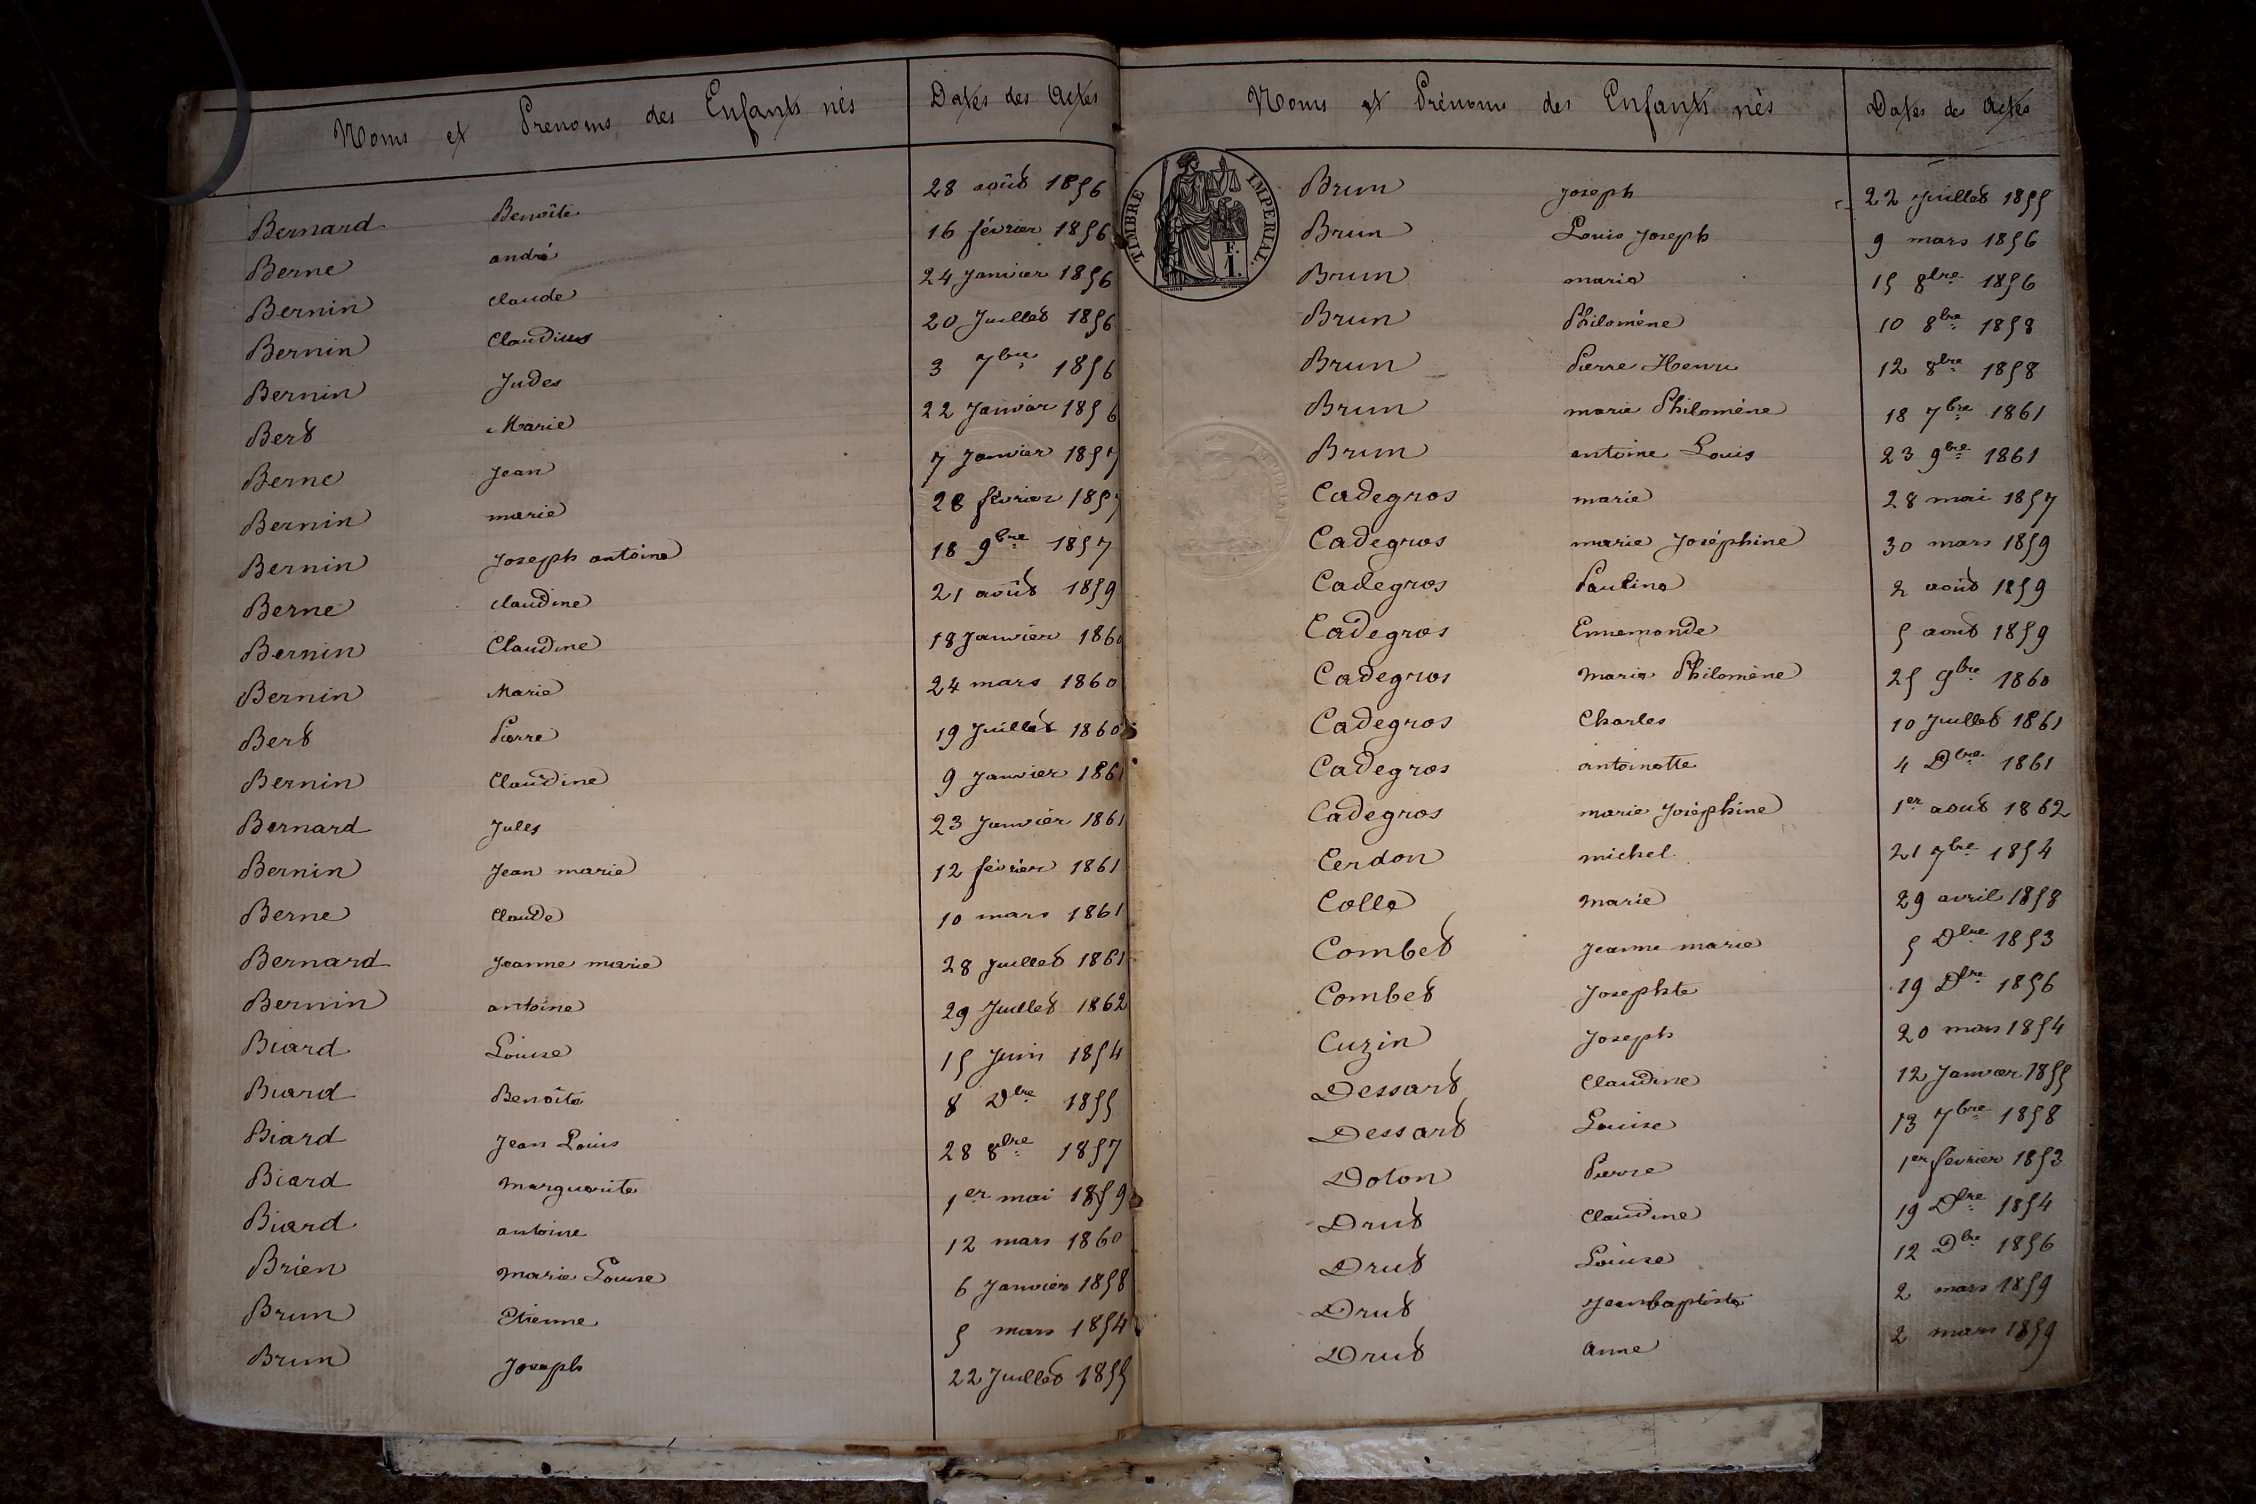 Noms et Prenoms des Enfants nés Dates des Actes
Bernard Benoîte 28 août 1856
Berne andré 16 février 1856
Bernin Claude 24 Janvier 1856
Bernin Claudius 20 Juillet 1856
Bernin Judes 3 7bre 1856
Bert Marie 22 Janvier 1856
Berne Jean 7 Janvier 1857
Bernin marie 28 février 1857
Bernin Joseph antoine 18 9bre 1857
Berne Claudine 21 août 1859
Bernin Claudine 18 Janvier 1860
Bernin Marie 24 mars 1860
Bert Pierre 19 Juillet 1860
Bernin Claudine 9 Janvier 1861
Bernard Jules 23 Janvier 1861
Bernin Jean marie 12 février 1861
Berne Claude 10 mars 1861
Bernard Jeanne marie 28 Juillet 1861
Bernin antoine 29 Juillet 1862
Biard Louise 15 Juin 1854
Biard Benoîte 8 Dbre 1855
Biard Jean Louis 28 8bre 1857
Biard Marguerite 1er mai 1859
Biard antoine 12 mars 1860
Brién Marie Louise 6 Janvier 1858
Brun Etienne 5 mars 1854
Brun Joseph 22 Juillet 1855
Noms et Prénoms des Enfants nés Dates des Actes
TIMBRE IMPERIAL
1 F.
Brun Joseph 22 Juillet 1855
Brun Louis Joseph 9 mars 1856
Brun marie 15 8bre 1856
Brun Philomène 10 8bre 1858
Brun Pierre Henri 12 8bre 1858
Brun marie Philomène 18 7bre 1861
Brun antoine Louis 23 9bre 1861
Cadegros marie 28 mai 1857
Cadegros marie Joséphine 30 mars 1859
Cadegros Pauline 2 août 1859
Cadegros Ennemonde 5 aout 1859
Cadegros Marie Philomène 25 9bre 1860
Cadegros Charles 10 Juillet 1861
Cadegros antoinette 4 Dbre 1861
Cadegros marie Joséphine 1er aout 1862
Cerdon michel 21 7bre 1854
Colle marie 29 avril 1858
Combet Jeanne marie 5 Dbre 1853
Combet Josephte 19 Dbre 1856
Cuzin Joseph 20 mars 1854
Dessart Claudine 12 Janvier 1855
Dessart Louise 13 7bre 1858
Doton Pierre 1er février 1853
Drut Claudine 19 Dbre 1854
Drut Louise 12 Dbre 1856
Drut Jean baptiste 2 mars 1859
Drut Anne 2 mars 1859